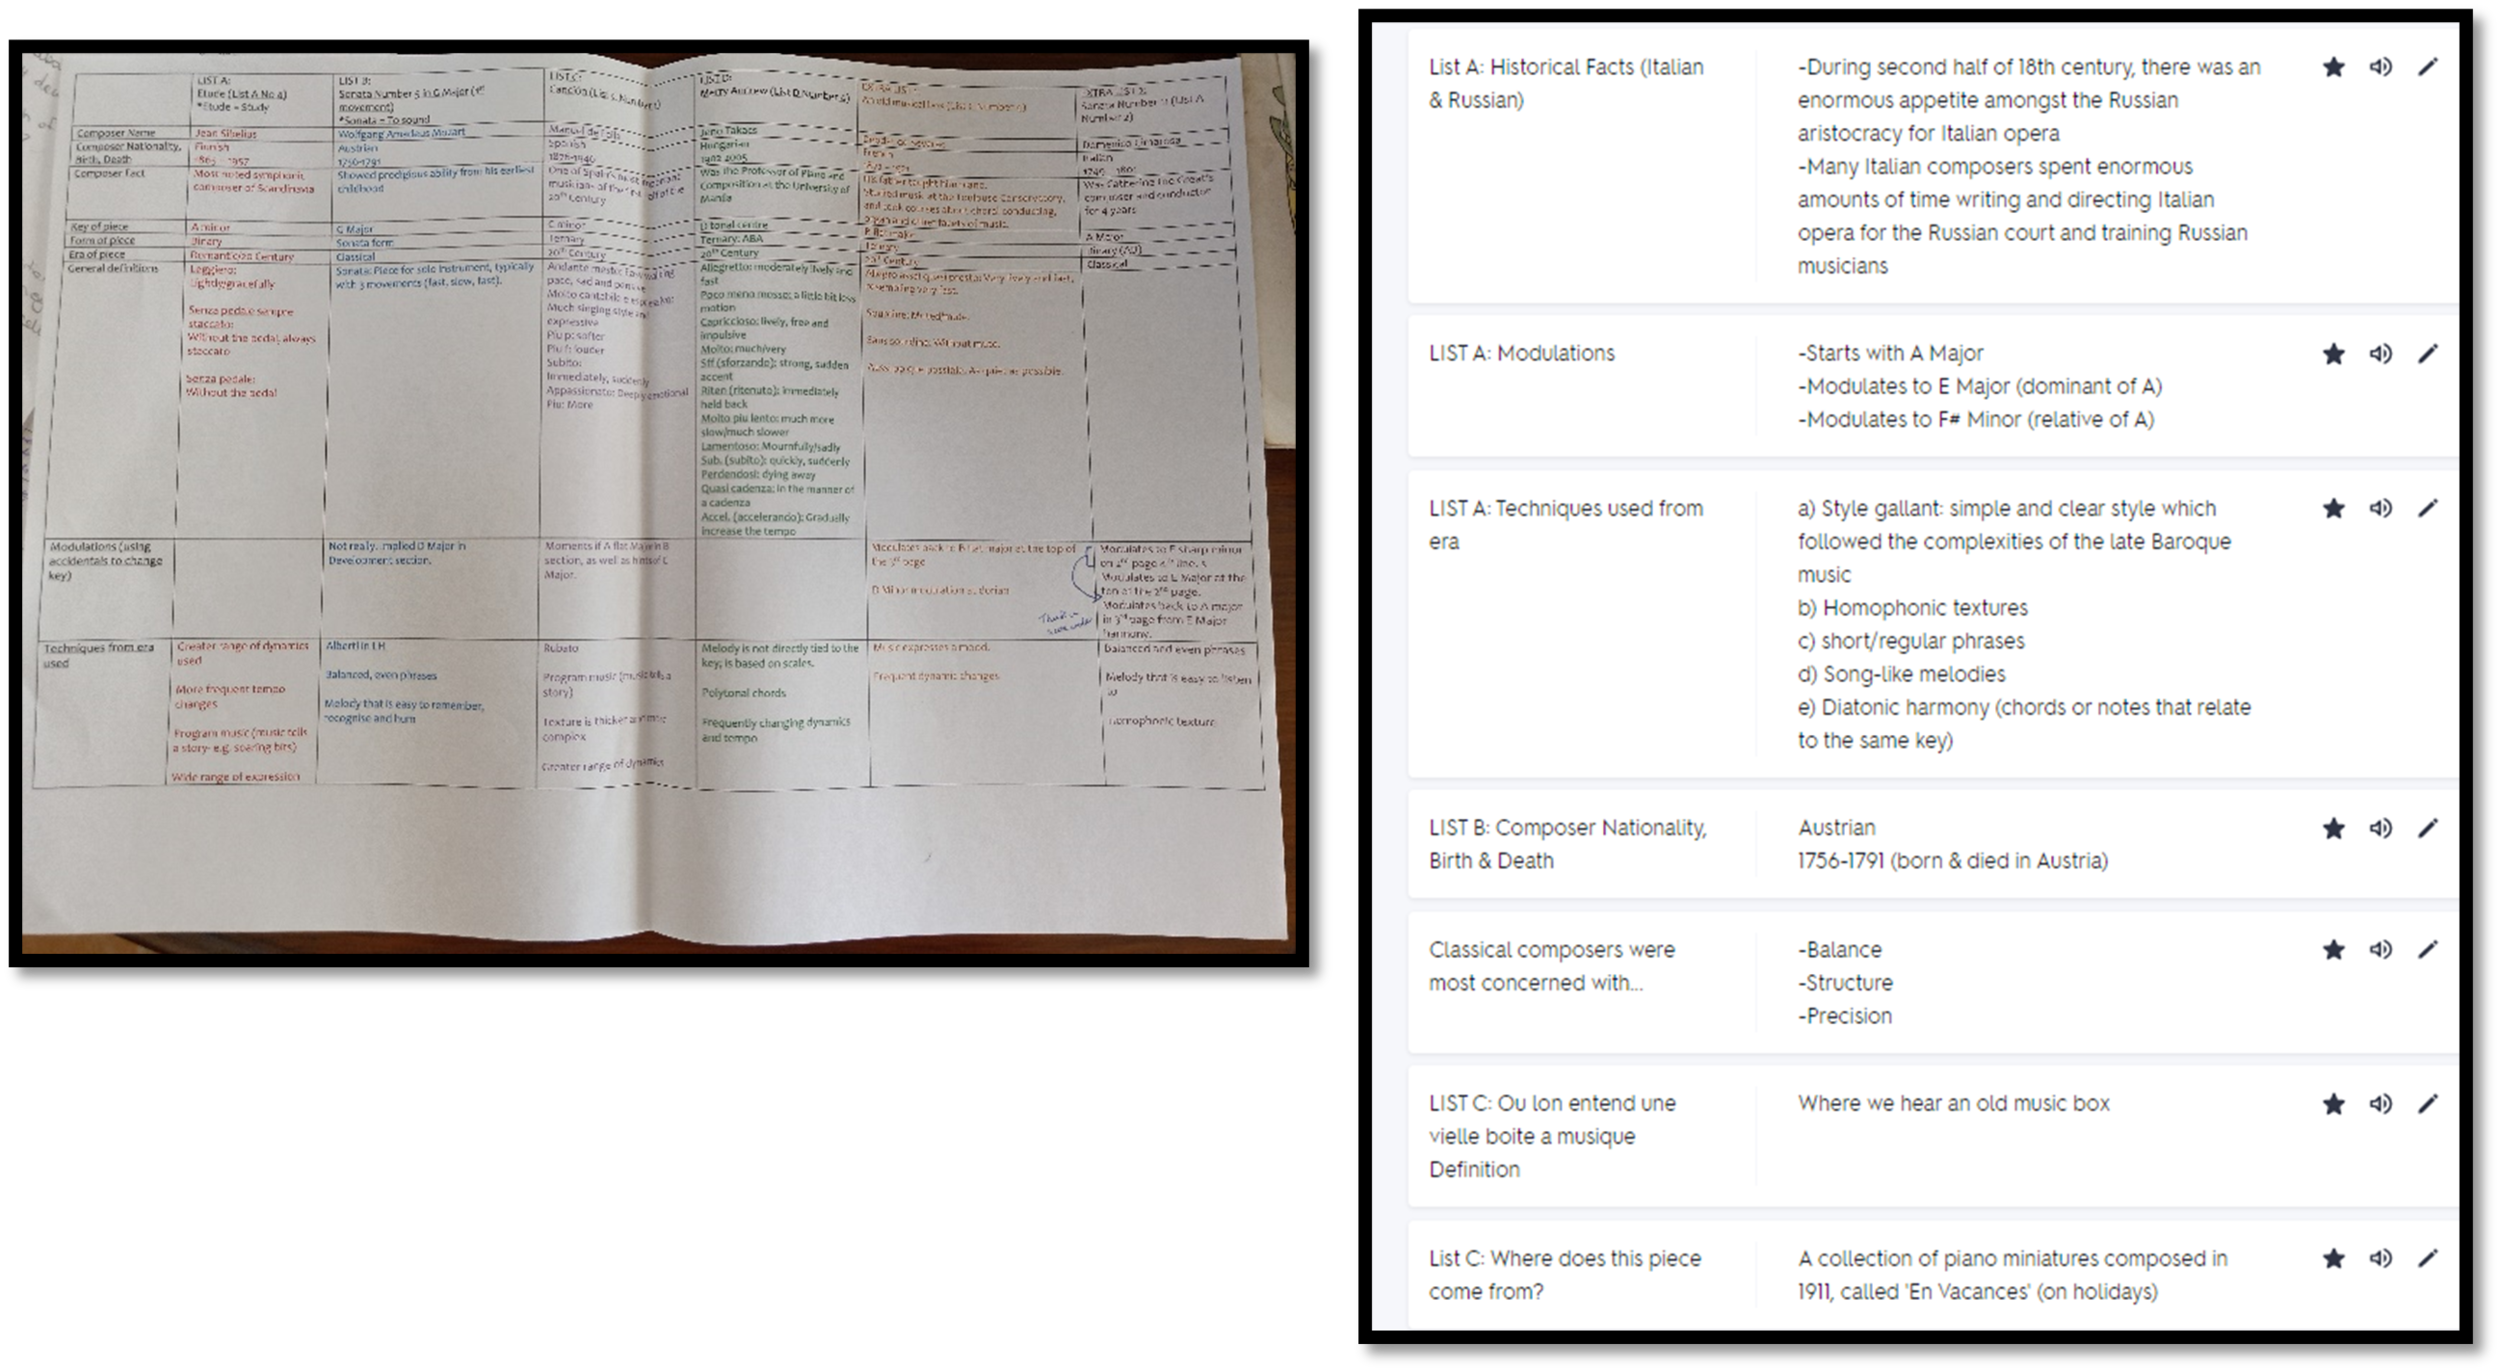 LIST A:
Etude (List A No 4)
*Etude = Study
LIST B:
Sonata Number 5 in G Major (1st
movement)
*Sonata = To sound
LIST C:
Canción (List C Number
LIST D:
Merry Andrew (List D Number
EXTRA LIST
An old musical box (List C Number
EXTRA LIST 2:
Sonata Number (List A
Number 2)
Composer Name
Jean Sibelius
Wolfgang Amadeus Mozart
Manuel de Falla
Jeno Takacs
Domenico Cimarosa
Composer Nationality,
Birth, Death
Finnish
1865 - 1957
Austrian
1756-1791
Spanish
1876-1946
Hungarian
1902-2005
French
Italian
1749 - 1801
Composer Fact
Most noted symphonic
composer of Scandinavia
Showed prodigious ability from his earliest
childhood
One of Spain's most important
musicians of the first half of the
20th Century
Was the Professor of Piano and
Composition at the University of
Manila
His father taught him piano.
Studied music at the Toulouse Conservatory,
and took courses about choral conducting,
organ and other facets of music.
Was Catherine the Great's
composer and conductor
for 4 years
Key of piece
A minor
G Major
C minor
D tonal centre
B flat major
A Major
Form of piece
Binary
Sonata form
Ternary
Ternary: ABA
Ternary
Binary (AB)
Era of piece
Romantic/20 Century
Classical
20th Century
20th Century
20th Century
Classical
General definitions
Leggiero:
Lightly/gracefully
Senza pedale sempre
staccato:
Without the pedal, always
staccato
Senza pedale:
Without the pedal
Sonata: Piece for solo instrument, typically
with 3 movements (fast, slow, fast).
Andante mesto: Fast walking
pace, sad and pensive
Molto cantabile e espressivo:
Much singing style and
expressive
Piu p: softer
Piu f: louder
Subito:
Immediately, suddenly
Appassionato: Deeply emotional
Piu: More
Allegretto: moderately lively and
fast
Poco meno mosso: a little bit less
motion
Capriccioso: lively, free and
impulsive
Molto: much/very
Sff (sforzando): strong, sudden
accent
Riten (ritenuto): immediately
held back
Molto piu lento: much more
slow/much slower
Lamentoso: Mournfully/sadly
Sub. (subito): quickly, suddenly
Perdendosi: dying away
Quasi cadenza: in the manner of
a cadenza
Accel. (accelerando): Gradually
increase the tempo
Very lively and fast,
resembling very fast.
Sourdine: Muted/mute.
Sans sourdine: Without mute.
As quiet as possible.
Modulations (using
accidentals to change
key)
Not really. Implied D Major in
Development section.
Moments if A flat Major in B
section, as well as hints of C
Major.
Modulates back to B flat major at the top of
the 3rd page
D Minor modulation at dorian
Modulates to F sharp minor
on 2nd page 4th line.
Modulates to E Major at the
top of the 2nd page.
Modulates back to A major
in 3rd page from E Major
harmony.
Techniques from era
used
Greater range of dynamics
used
More frequent tempo
changes
Program music (music tells
a story- e.g. soaring bits)
Wide range of expression
Alberti in LH
Balanced, even phrases
Melody that is easy to remember,
recognise and hum
Rubato
Program music (music tells a
story)
Texture is thicker and more
complex
Greater range of dynamics
Melody is not directly tied to the
key; is based on scales.
Polytonal chords
Frequently changing dynamics
and tempo
Music expresses a mood.
Frequent dynamic changes
balanced and even phrases
Melody that is easy to listen
to
Homophonic texture
List A: Historical Facts (Italian
& Russian)
-During second half of 18th century, there was an
enormous appetite amongst the Russian
aristocracy for Italian opera
-Many Italian composers spent enormous
amounts of time writing and directing Italian
opera for the Russian court and training Russian
musicians
LIST A: Modulations
-Starts with A Major
-Modulates to E Major (dominant of A)
-Modulates to F# Minor (relative of A)
LIST A: Techniques used from
era
a) Style gallant: simple and clear style which
followed the complexities of the late Baroque
music
b) Homophonic textures
c) short/regular phrases
d) Song-like melodies
e) Diatonic harmony (chords or notes that relate
to the same key)
LIST B: Composer Nationality,
Birth & Death
Austrian
1756-1791 (born & died in Austria)
Classical composers were
most concerned with...
-Balance
-Structure
-Precision
LIST C: Ou lon entend une
vielle boite a musique
Definition
Where we hear an old music box
List C: Where does this piece
come from?
A collection of piano miniatures composed in
1911, called 'En Vacances' (on holidays)